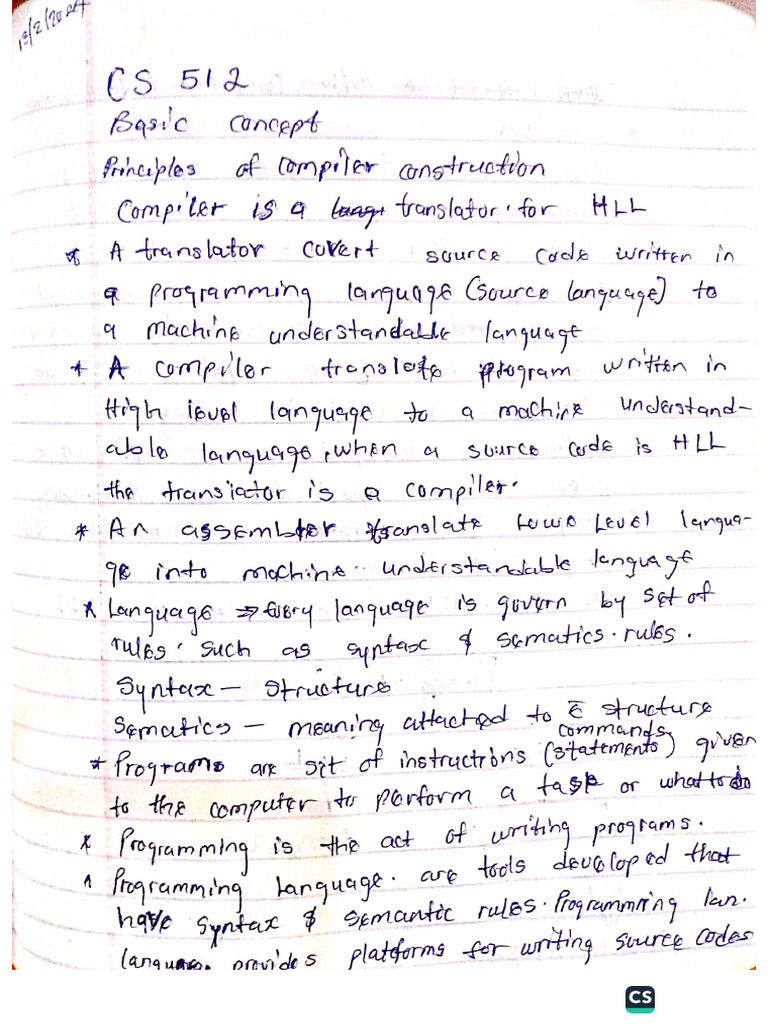 12/2/2024
CS 512
Basic concept
Principles of compiler construction
Compiler is a translator. for HLL
* A translator covert source code written in
a programming language (source language) to
a machine understandable language
* A compiler translate program written in
High level language to a machine understand-
able language, when a source code is HLL
the translator is a compiler.
* An assembler translate Lowe Level langua-
ge into machine understandable language
* Language ⇒ Every language is govern by set of
rules. such as syntax & sematics. rules.
Syntax - structure
Sematics - meaning attached to c̄ structure
commands
* Programs are set of instructions (statements) given
to the computer to perform a task or what to do
* Programming is the act of writing programs.
* Programming Language. are tools developed that
have syntax & semantic rules. Programmring lan.
language. provides platforms for writing source codes
CS